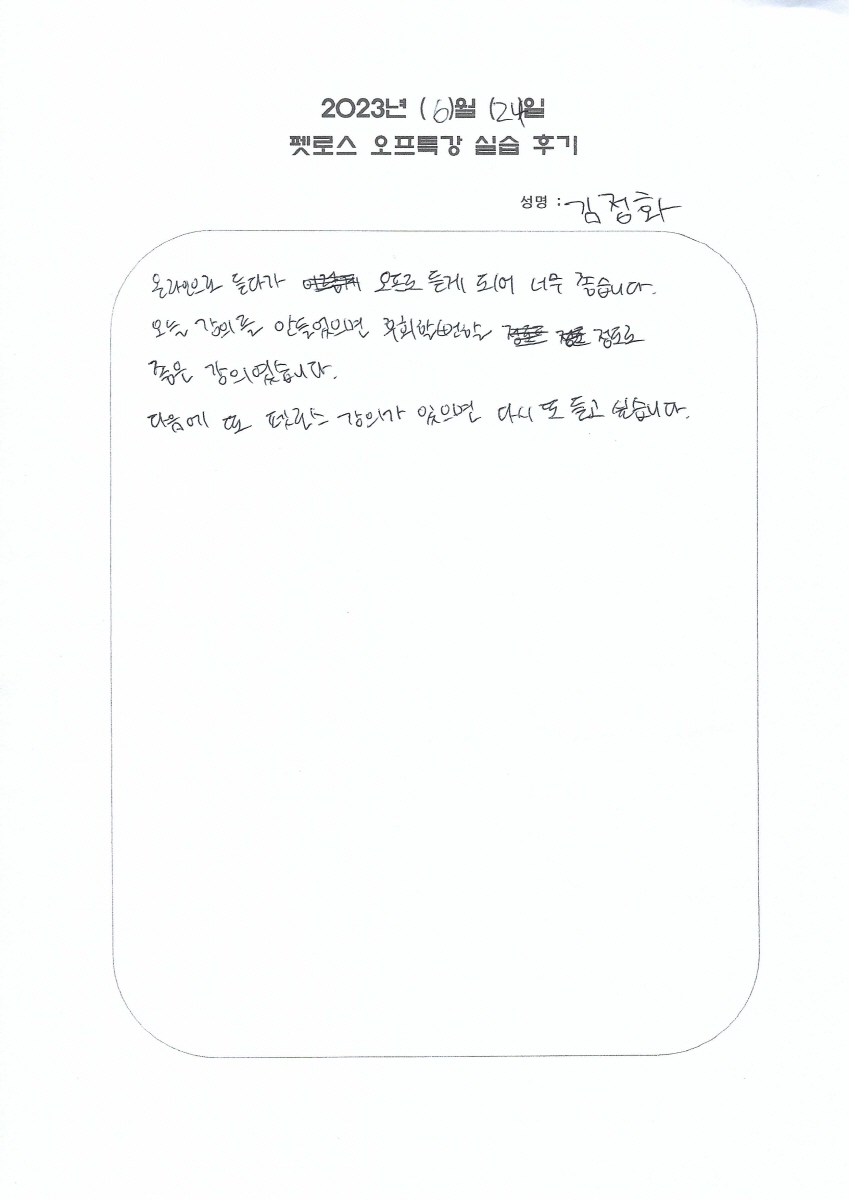 2023년 (6)월 (24)일
펫로스 오프특강 실습 후기
성명 : 김정화
온라인으로 듣다가 오프로 듣게 되어 너무 좋습니다.
오늘 강의를 안들었으면 후회할뻔할 정도로
좋은 강의였습니다.
다음에 또 펫로스 강의가 있으면 다시 또 듣고 싶습니다.